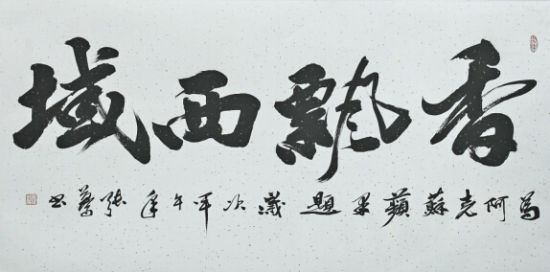 香飄西域
為阿克蘇蘋果題歲次甲午年張書